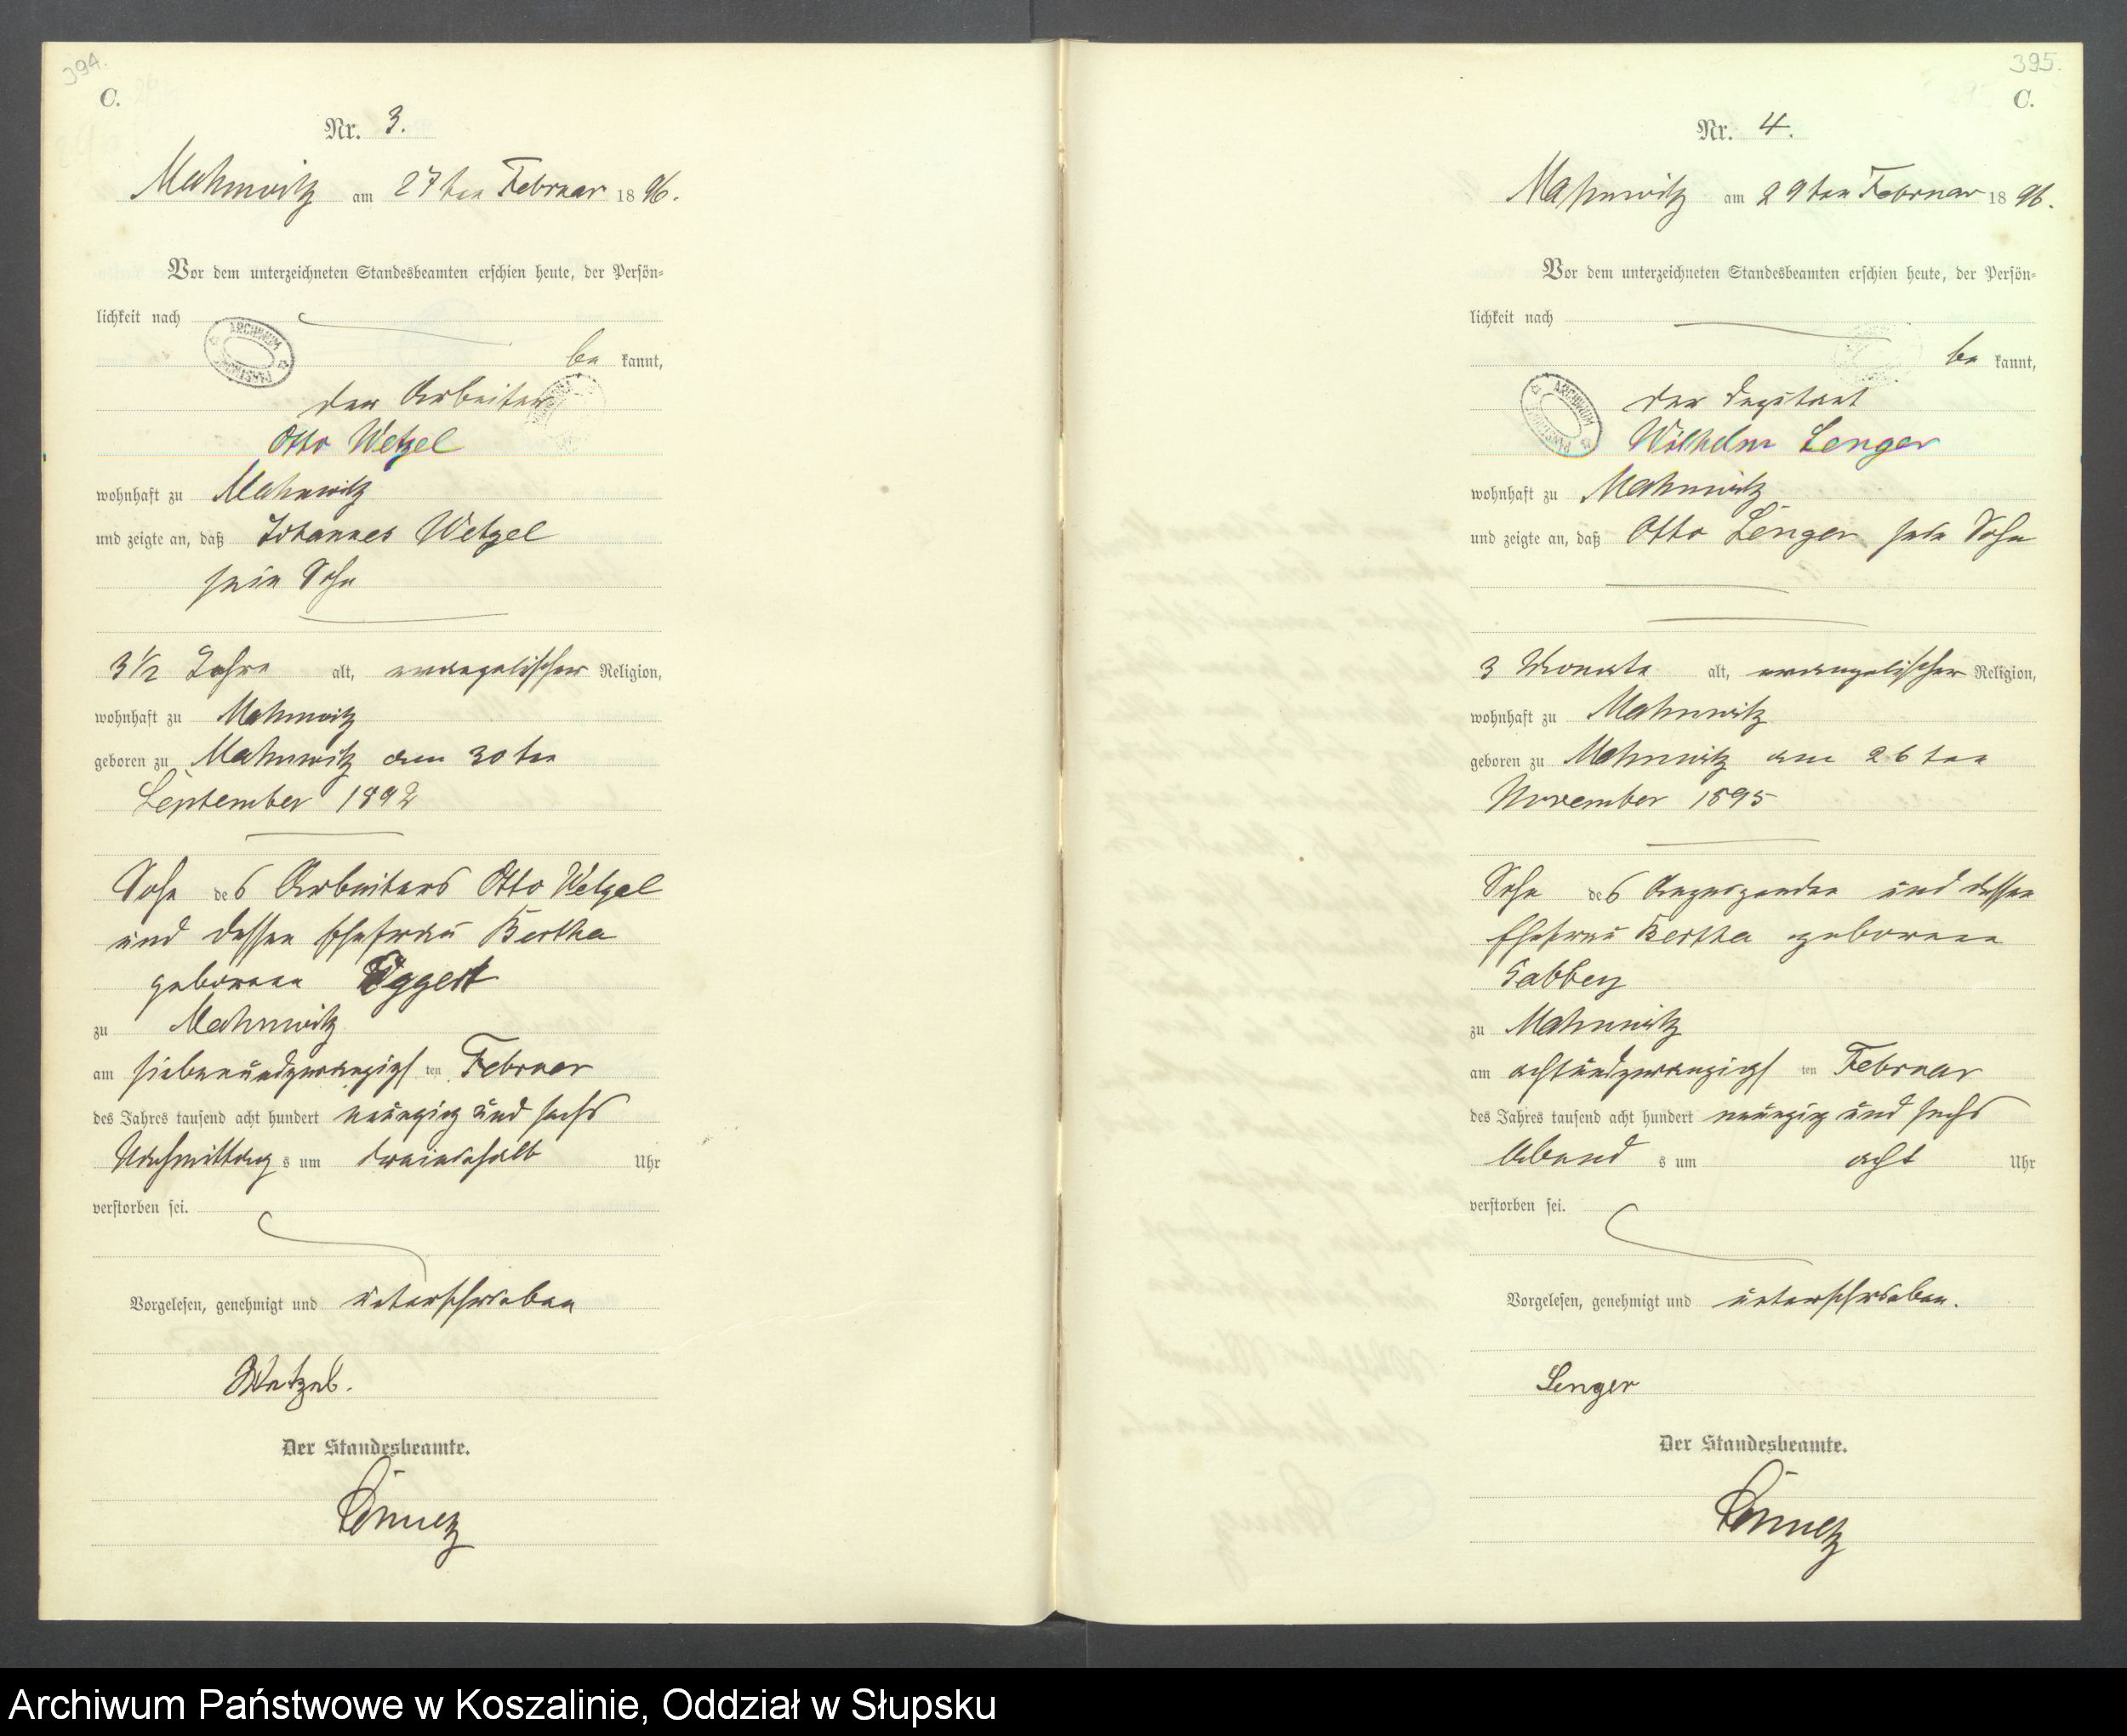 394.
C.
Nr. 3.
Mahnwitz am 27ten Februar 1896.
Vor dem unterzeichneten Standesbeamten erschien heute, der Persön-
lichkeit nach
be kannt,
der Arbeiter
Otto Wetzel
wohnhaft zu Mahnwitz
und zeigte an, daß Johannes Wetzel
sein Sohn
3 1/2 Jahre alt, evangelischer Religion,
wohnhaft zu Mahnwitz
geboren zu Mahnwitz am 30ten
September 1892
Sohn des Arbeiters Otto Wetzel
und dessen Ehefrau Bertha
geborenen Eggert
zu Mahnwitz
am siebenundzwanzigsten Februar
des Jahres tausend acht hundert neunzig und sechs
Nachmittags um dreieinhalb Uhr
verstorben sei.
Vorgelesen, genehmigt und unterschrieben
Wetzel.
Der Standesbeamte.
ARCHIWUM
395.
C.
Nr. 4.
Mahnwitz am 29ten Februar 1896.
Vor dem unterzeichneten Standesbeamten erschien heute, der Persön-
lichkeit nach
be kannt,
der Deputant
Wilhelm Lenger
wohnhaft zu Mahnwitz
und zeigte an, daß Otto Lenger, sein Sohn
3 Monate alt, evangelischer Religion,
wohnhaft zu Mahnwitz
geboren zu Mahnwitz am 26ten
November 1895
Sohn des Anzeigenden und dessen
Ehefrau Bertha geborenen
Gabbey
zu Mahnwitz
am achtundzwanzigsten Februar
des Jahres tausend acht hundert neunzig und sechs
Abends um acht Uhr
verstorben sei.
Vorgelesen, genehmigt und unterschrieben.
Lenger
Der Standesbeamte.
ARCHIWUM
Archiwum Państwowe w Koszalinie, Oddział w Słupsku